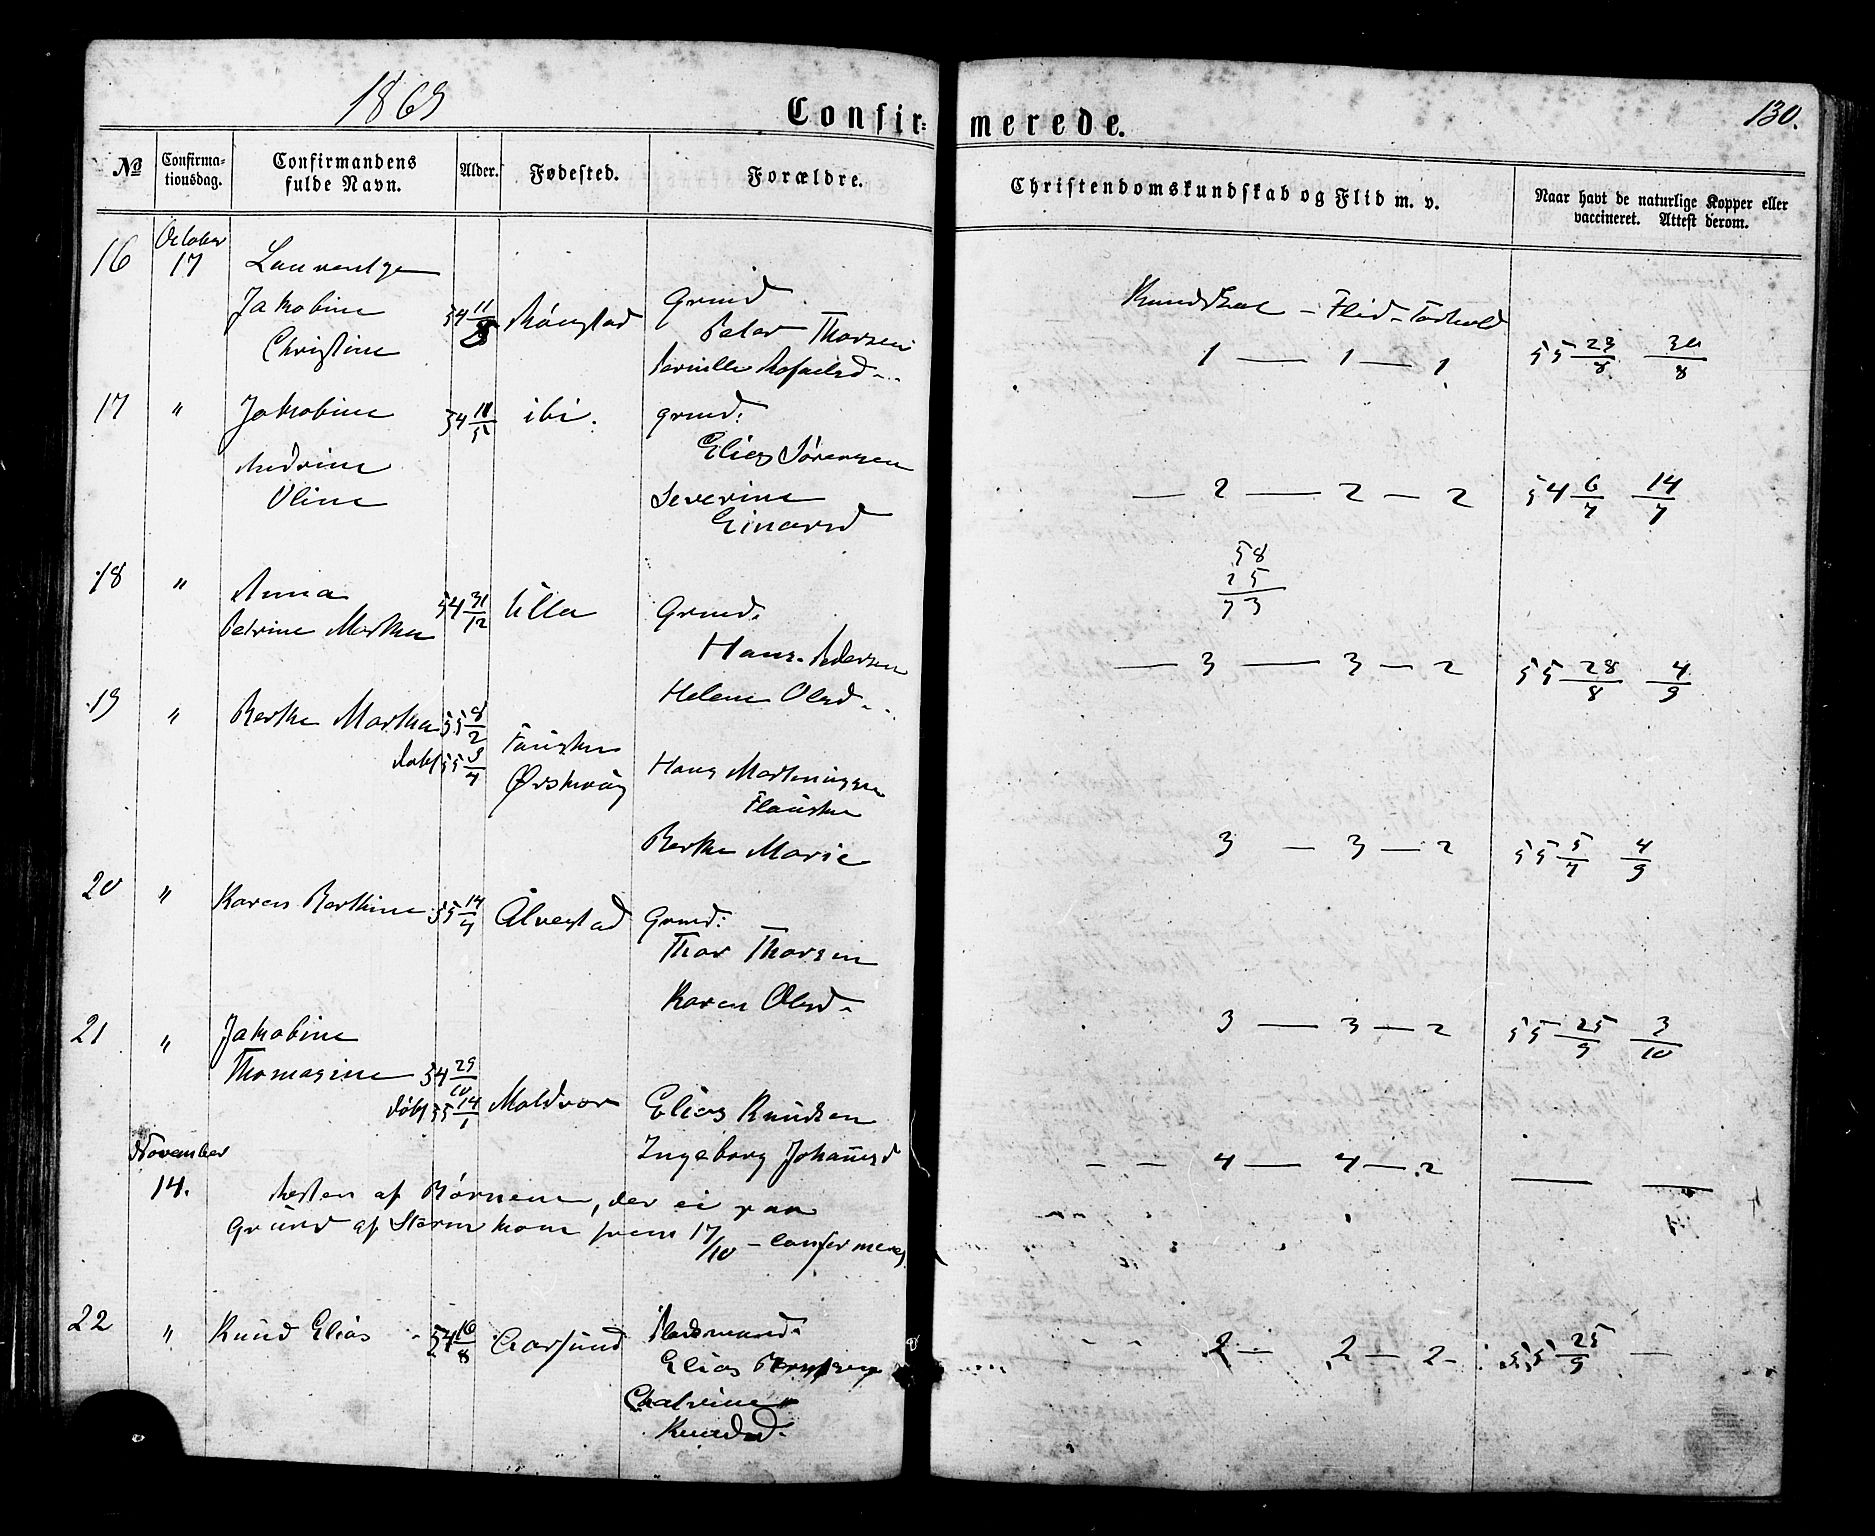 1869
Confir=merede.
130.
No
Confirma-
tionsdag.
Confirmandens
fulde Navn.
Alder.
Fødested.
Forældre.
Christendomskundskab og Flid m. v.
Naar havt de naturlige Kopper eller
vaccineret. Attest derom.
16 October 17
Laurentze
Jakobine
Christine
54 11/8
Grmd
Peder Thorsen
Pernille
Kundskab – Flid – Forhold
1 — 1 — 1
55 29/8 30/8
17 " Jakobine
Andrine
Oline
54 18/5 ibi.
grmd:
Elias Sørensen
Severine
Einarsd
— 2 — 2 — 2
54 6/7 14/7
58
15
73
18 " Anna
Petrine Marthea
54 31/12 Ulla
Grmd.
Hans Pedersen
Helene Olsd.
— 3 — 3 — 2
55 28/8 4/9
19 " Berthe Marthea 55 8/2
døbt 55 3/4
Fauske
Ørskoug
Hans Martinussen
Flauske
Berthe Marie
3 — 3 — 2
55 5/7 4/9
20 " Karen Berthine 55 14/4 Alvestad
Grmd:
Thor Thorsen
Karen Olsd.
3 — 3 — 2
55 25/9 3/10
21 " Jakobine
Thomasine 54 29/10
døbt 55 14/1
Moldvær
Elias Knudsen
Ingeborg Johannesd
— — 4 — 4 — 2
November
14.
Resten af Børnene, der ei paa
Grund af Storm kom frem 17/10 – confirmeres
22 " Knud Elias 54 16/8 Aarsund
Pladsmand.
Elias
Cathrine
Knudsd.
2 — 2 — 2
55 25/9 —